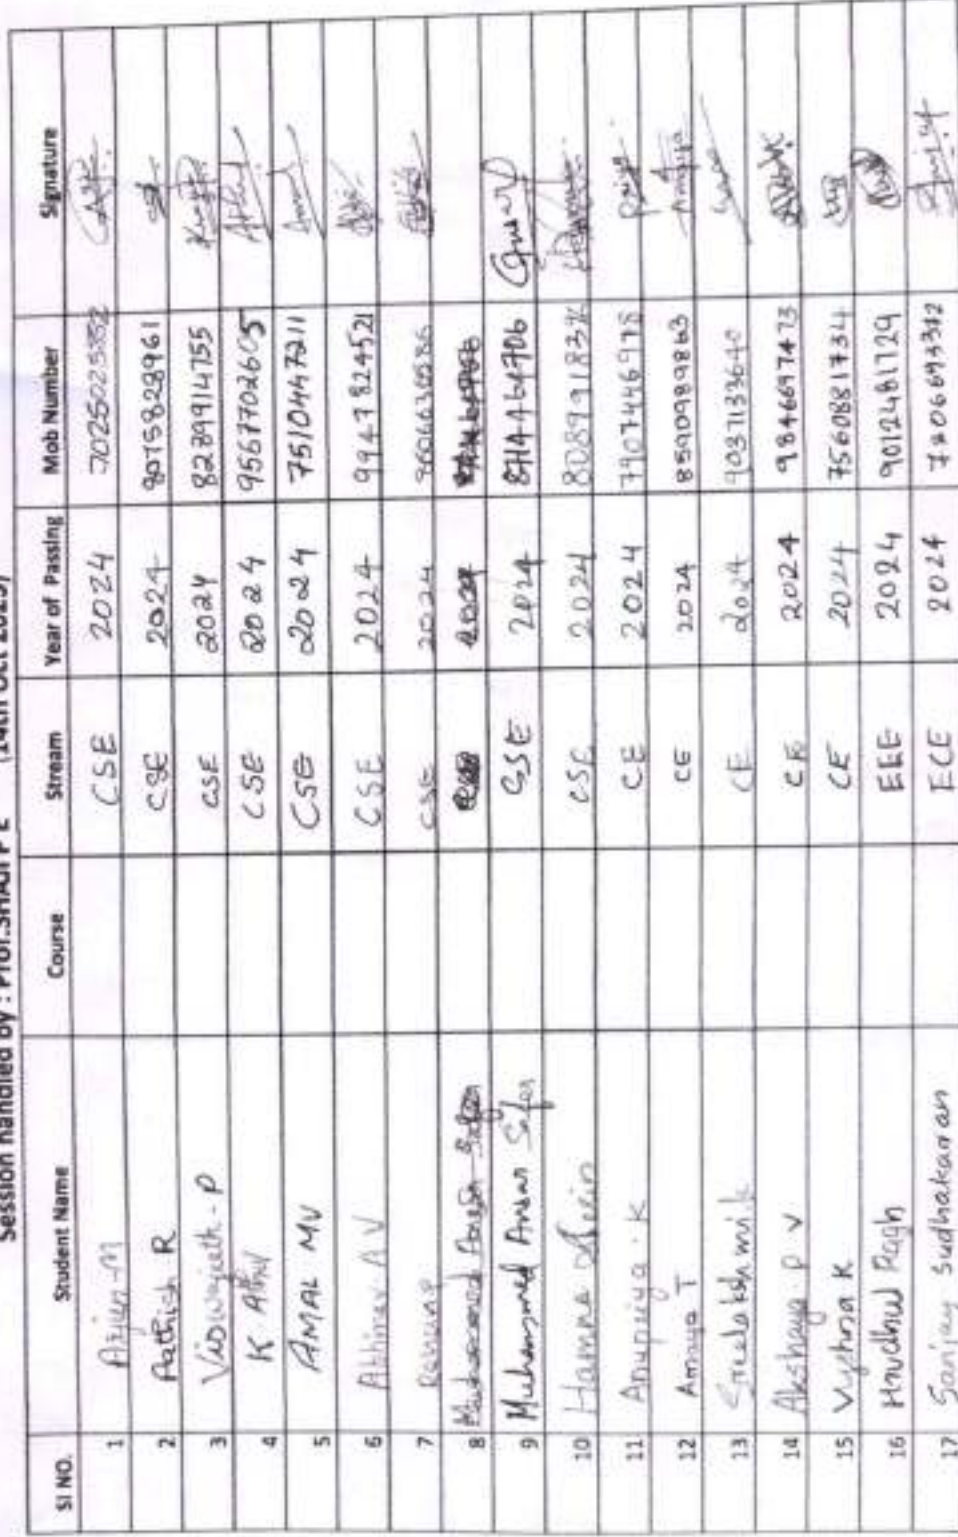 Session handled by : Prof.SHAJI P E (14th Oct 2025)
SI NO. Student Name Course Stream Year of Passing Mob Number Signature
1 Arjun-M CSE 2024 7025025352
2 Aathish R CSE 2024 9075828961
3 Viswajeeth-P CSE 2024 8239914755
4 K Athul CSE 2024 9567702605 Athul
5 AMAL MV CSE 2024 7510447211 Amal
6 Abhinav A V CSE 2024 9947824521 Abhi
7 CSE 2024
8 2024
9 Muhammed Ansar Safar CSE 2024
10 Hanna CSE 2024
11 Anupriya K CE 2024 7907446978 Priya
12 Amaya T CE 2024 8590989863 Amaya
13 Sreelakshmi.k CE 2024 9037133640
14 Akshaya P V CE 2024 9846697473
15 Vyshna K CE 2024 7560881734
16 Hrudhul EEE 2024 9012481729
17 Sanjay Sudhakaran ECE 2024 7306693312